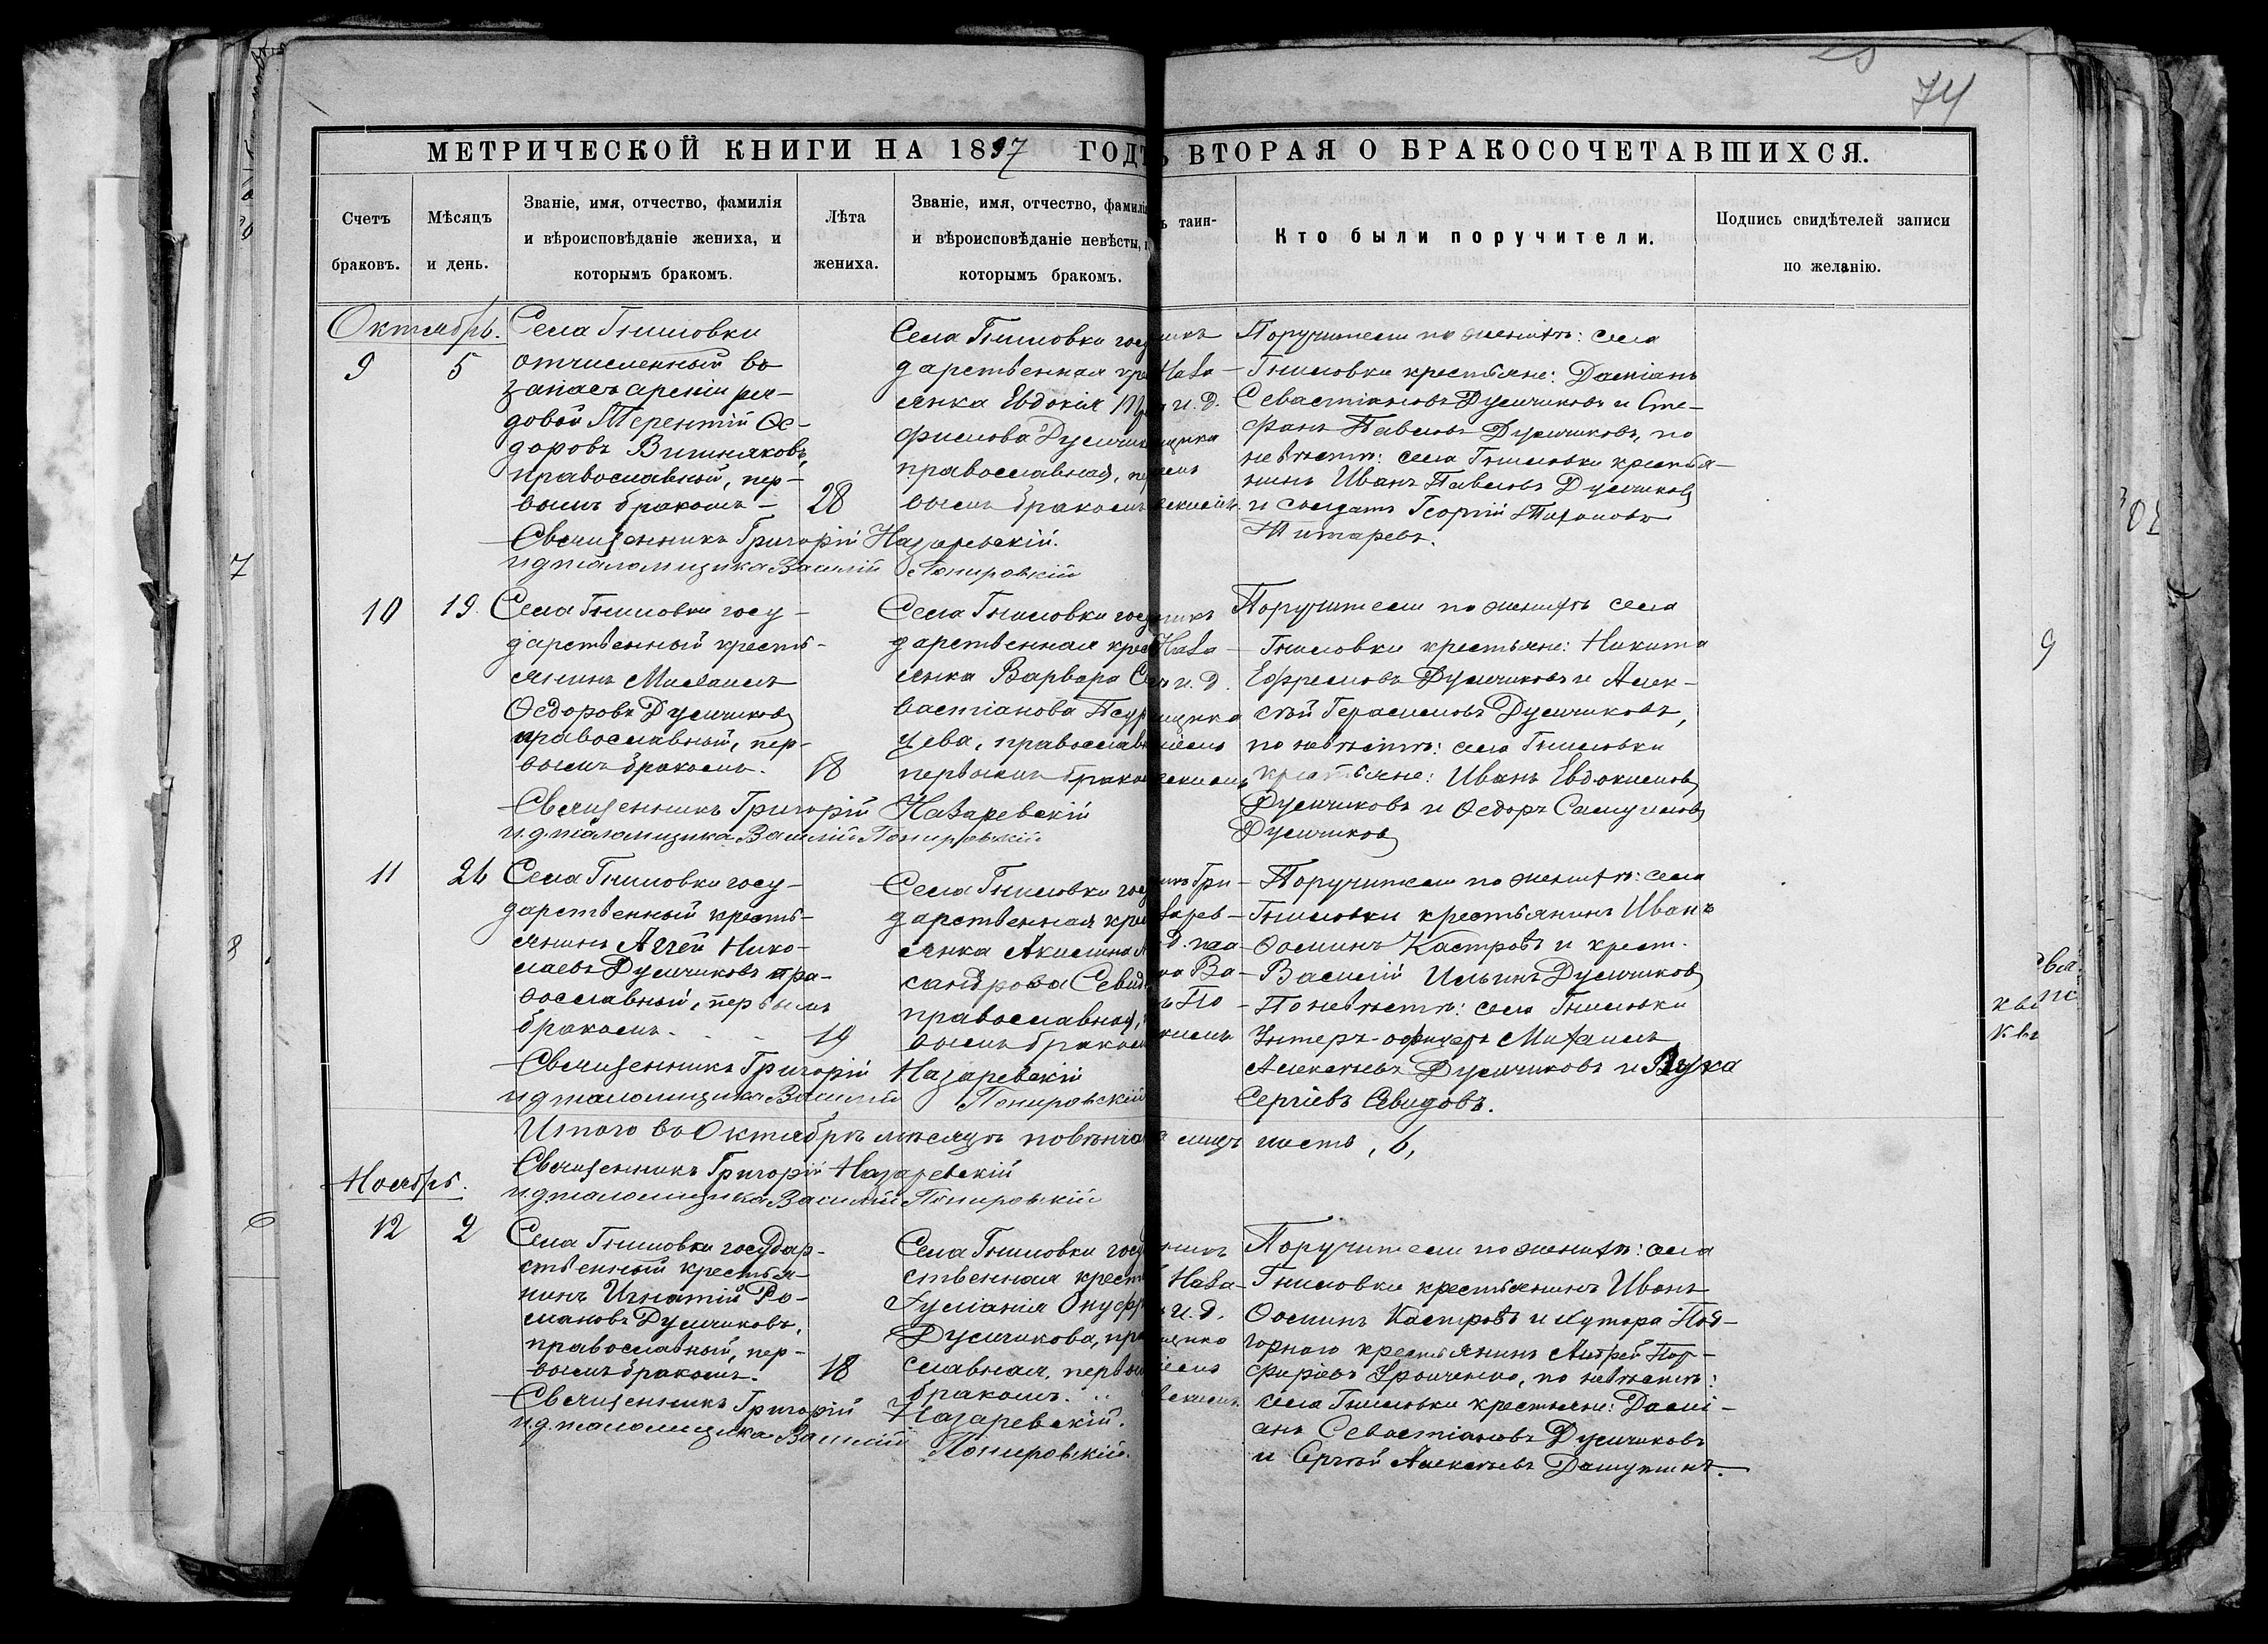 74
МЕТРИЧЕСКОЙ КНИГИ НА 1897 ГОДЪ
ВТОРАЯ О БРАКОСОЧЕТАВШИХСЯ.
Счетъ
браковъ.
Мѣсяцъ
и день.
Званіе, имя, отчество, фамилія
и вѣроисповѣданіе жениха, и
которымъ бракомъ.
Лѣта
жениха.
Званіе, имя, отчество, фамилі
и вѣроисповѣданіе невѣсты,
которымъ бракомъ.
таин-
Кто были поручители.
Подпись свидѣтелей записи
по желанію.
Октябрь.
9 5
Села Гниловки
отчисленный въ
запасъ арміи ря-
довой Терентій Ѳе-
доровъ Вишняковъ,
православный, пер-
вымъ бракомъ – 28
Села Гниловки гос
дарственная кре
янка Евдокія
филова Думчик
православная, пе
вымъ бракомъ
Поручители по женихѣ: села
Гниловки крестьяне: Даміанъ
Севастіановъ Думчиковъ и Сте-
фанъ Павловъ Думчиковъ, по
невѣстѣ: села Гниловки крестья-
нинъ Иванъ Павловъ Думчиковъ
и солдатъ Георгій Тихоновъ
Титаревъ.
Священникъ Григорій Назаревскій.
и д псаломщика Василій Понировскій
10 19.
Села Гниловки госу-
дарственный кресть-
янинъ Михаилъ
Ѳедоровъ Думчиковъ
православный, пер-
вымъ бракомъ. 18
Села Гниловки гос
дарственная крес
янка Варвара Се
вастіанова Псур
цева, православ
первымъ брако
Поручители по женихѣ села
Гниловки крестьяне: Никита
Ефремовъ Думчиковъ и Алек-
сѣй Герасимовъ Думчиковъ,
по невѣстѣ: села Гниловки
крестьяне: Иванъ Евдокимовъ
Думчиковъ и Ѳедоръ Самуиловъ
Думчиковъ
Священникъ Григорій Назаревскій
и. д. псаломщика Василій Понировскій
11 26
Села Гниловки госу-
дарственный кресть-
янинъ Аггей Нико-
лаевъ Думчиковъ пра-
вославный, первымъ
бракомъ. - - 19
Села Гниловки гос
дарственная кре
янка Акилина А
сандрова Севид
православная,
вымъ брако
Поручители по женихѣ: села
Гниловки крестьянинъ Иванъ
Ѳоминъ Кастровъ и крест.
Василій Ильинъ Думчиковъ
По невѣстѣ: села Гниловки
Унтеръ-офицеръ Михаилъ
Алексѣевъ Думчиковъ и Лука
Сергіевъ Севидовъ.
Священникъ Григорій Назаревскій
и д псаломщика Василій Понировскій
Итого въ Октябрѣ мѣсяцѣ повѣнча лицъ шесть, 6,
Священникъ Григорій Назаревскій
и. д псаломщика Василій Понировскій
Ноябрь.
12 2
Села Гниловки государ-
ственный крестья-
нинъ Игнатій Ро-
мановъ Думчиковъ,
православный, пер-
вымъ бракомъ. 18
Села Гниловки госу
ственная крест
Іуліанія Онуфр
Думчикова, пра
славная, первы
бракомъ.
Поручители по женихѣ: села
Гниловки крестьянинъ Иванъ
Ѳоминъ Кастровъ и хутора Под-
горнаго крестьянинъ Андрей Пор-
фиріевъ , по невѣстѣ:
села Гниловки крестьяне: Дамі-
анъ Севастіановъ Думчиковъ
и Сергѣй Алексѣевъ Дашуткинъ.
Священникъ Григорій Назаревскій.
и. д. псаломщика Василій Понировскій.